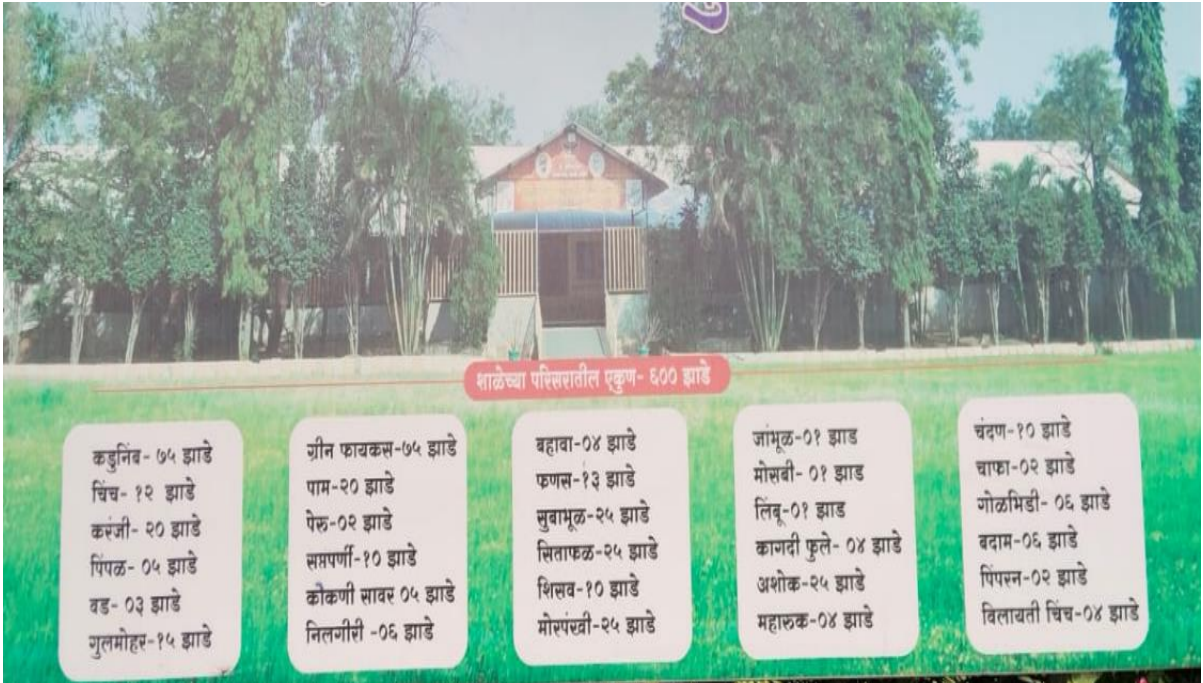 शाळेच्या परिसरातील एकुण- ६०० झाडे
कडुनिंब- ७५ झाडे
चिंच- १२ झाडे
करंजी- २० झाडे
पिंपळ- ०५ झाडे
वड- ०३ झाडे
गुलमोहर-१५ झाडे
ग्रीन फायकस-७५ झाडे
पाम-२० झाडे
पेरू-०२ झाडे
सप्तपर्णी-१० झाडे
कोकणी सावर ०५ झाडे
निलगीरी -०६ झाडे
बहावा-०४ झाडे
फणस-१३ झाडे
सुबाभूळ-२५ झाडे
सिताफळ-२५ झाडे
शिसव-१० झाडे
मोरपंखी-२५ झाडे
जांभूळ-०१ झाड
मोसबी- ०१ झाड
लिंबू-०१ झाड
कागदी फुले- ०४ झाडे
अशोक-२५ झाडे
महारुक-०४ झाडे
चंदण-१० झाडे
चाफा-०२ झाडे
गोळभिडी- ०६ झाडे
बदाम-०६ झाडे
पिंपरन-०२ झाडे
विलायती चिंच-०४ झाडे